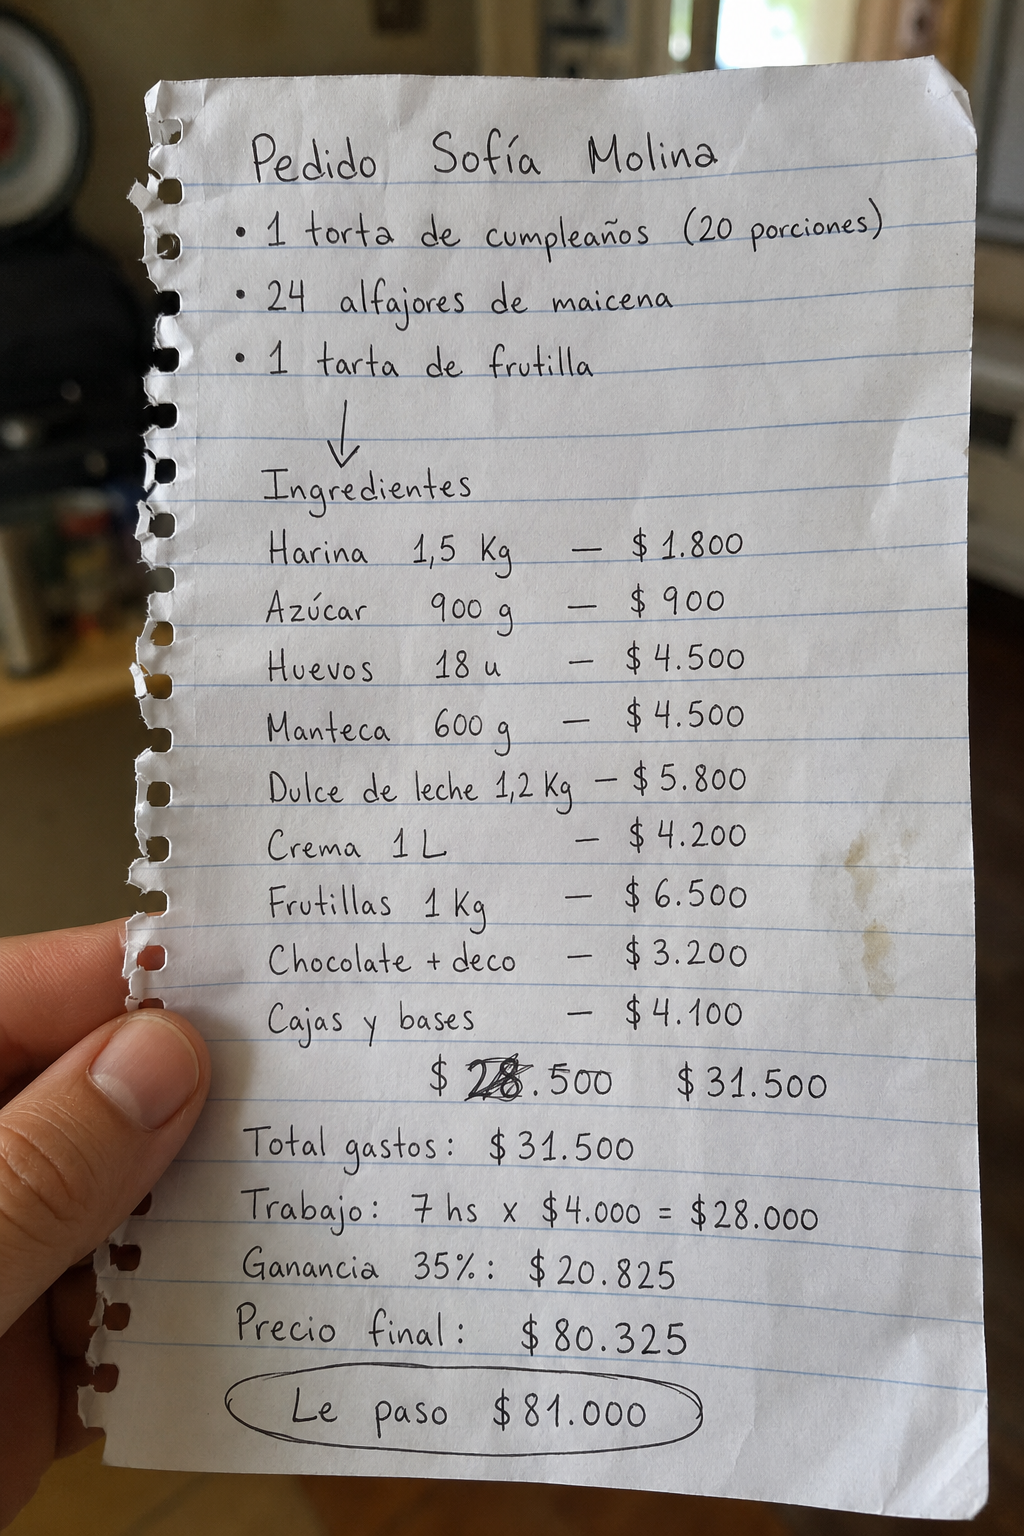 Pedido Sofía Molina
• 1 torta de cumpleaños (20 porciones)
• 24 alfajores de maicena
• 1 tarta de frutilla
Ingredientes
Harina 1,5 Kg — $ 1.800
Azúcar 900 g — $ 900
Huevos 18 u — $ 4.500
Manteca 600 g — $ 4.500
Dulce de leche 1,2 Kg — $ 5.800
Crema 1 L — $ 4.200
Frutillas 1 Kg — $ 6.500
Chocolate + deco — $ 3.200
Cajas y bases — $ 4.100
$ 28.500 $ 31.500
Total gastos: $ 31.500
Trabajo: 7 hs x $4.000 = $28.000
Ganancia 35%: $ 20.825
Precio final: $ 80.325
Le paso $ 81.000